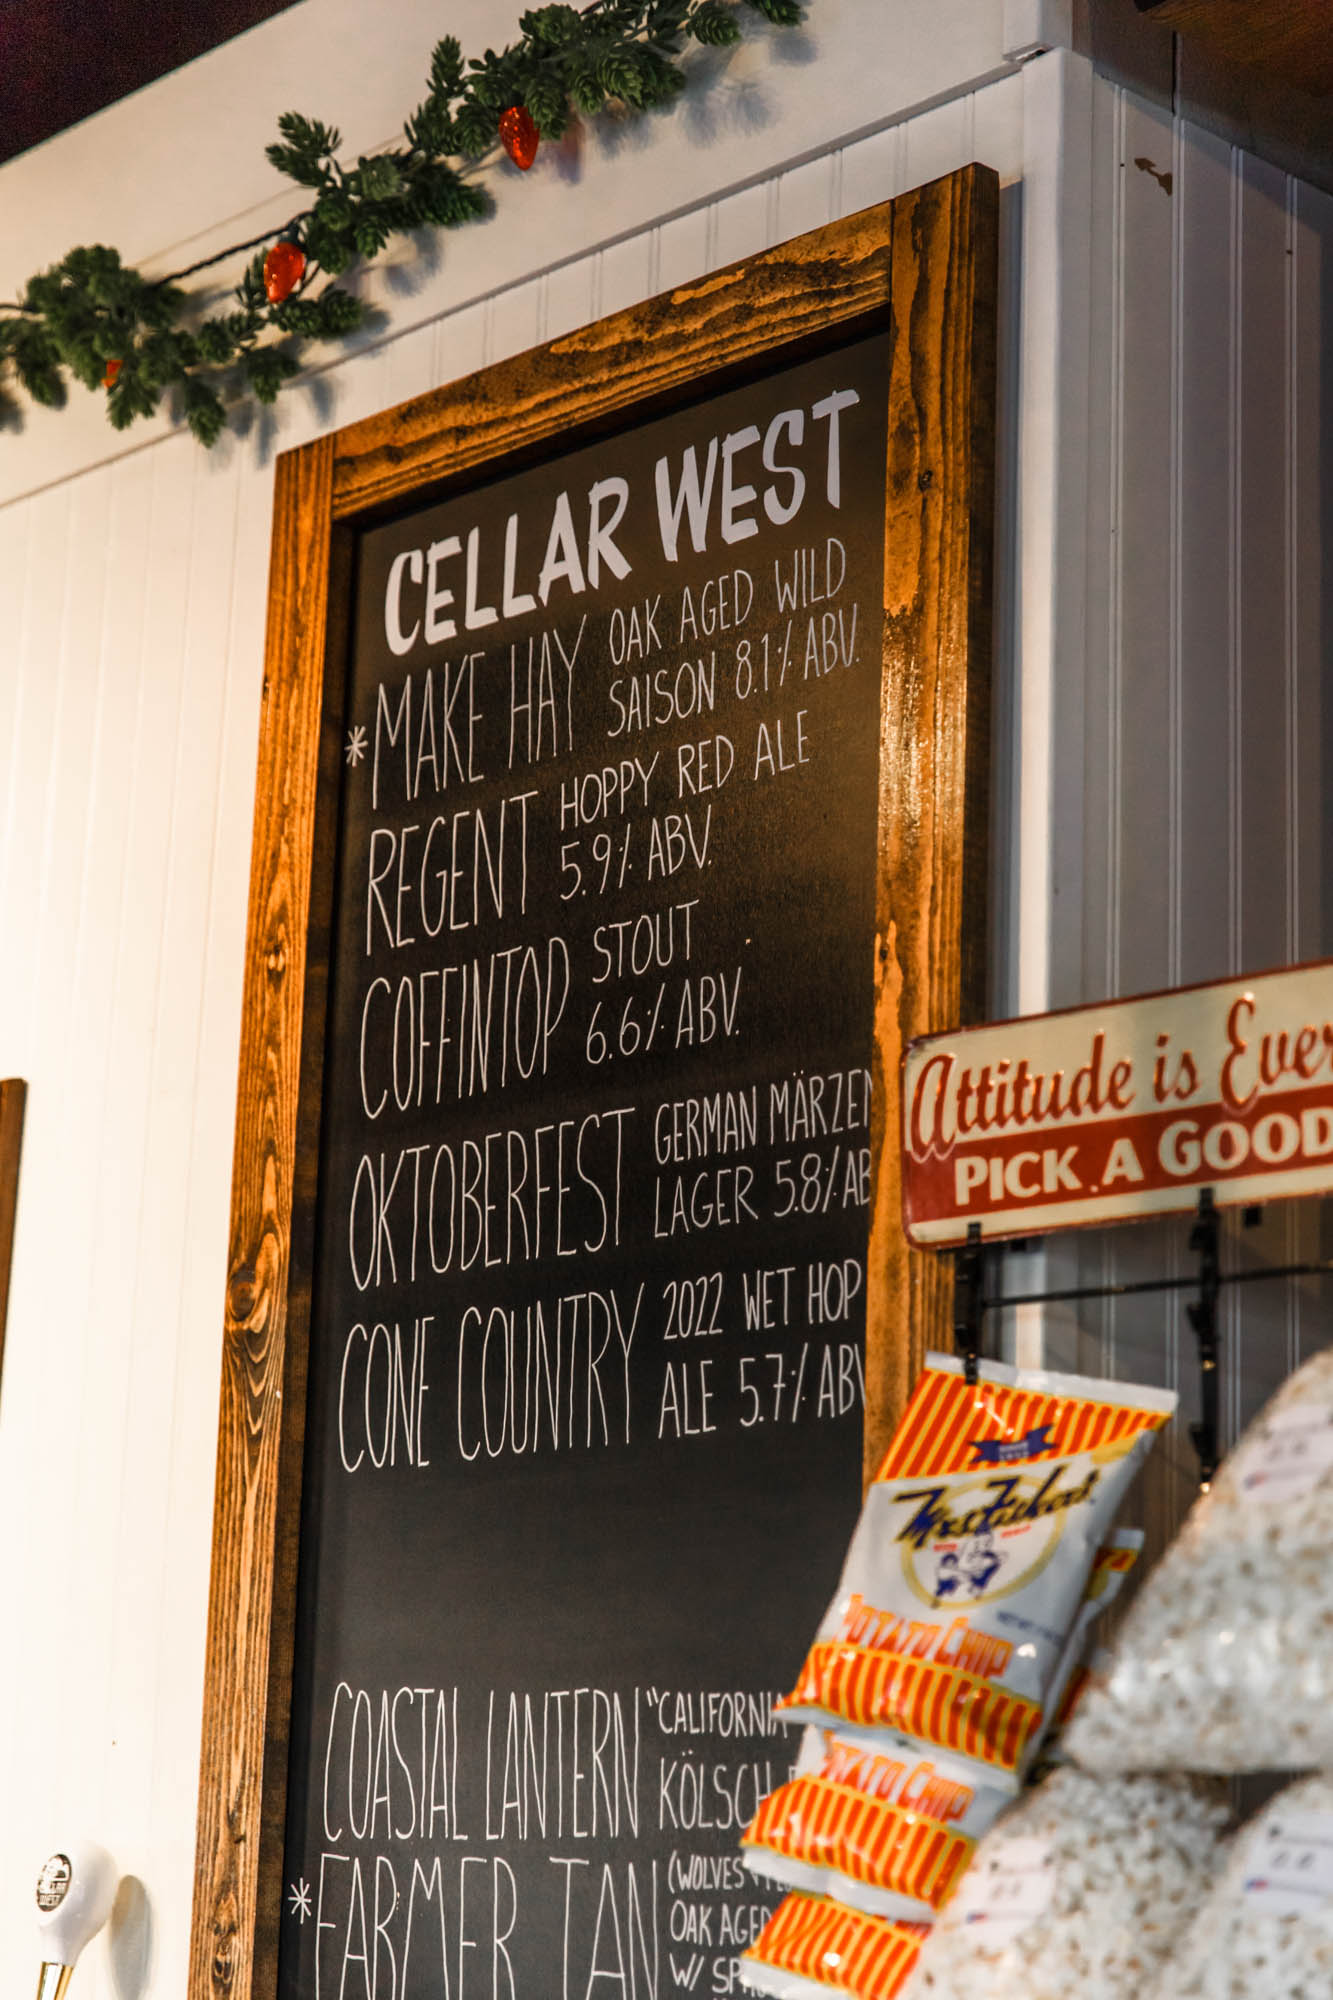 CELLAR WEST
*MAKE HAY OAK AGED WILD
SAISON 8.1% ABV.
REGENT HOPPY RED ALE
5.9% ABV.
COFFINTOP STOUT
6.6% ABV.
OKTOBERFEST GERMAN MÄRZEN
LAGER 5.8% AB
CONE COUNTRY 2022 WET HOP
ALE 5.7% ABV
COASTAL LANTERN "CALIFORNIA
KÖLSCH
*FARMER TAN (WOLVES
OAK AGED
W/ SP
Attitude is Ever
PICK A GOOD
SINCE
Potato Chip
Potato Chip
CELLAR
WEST